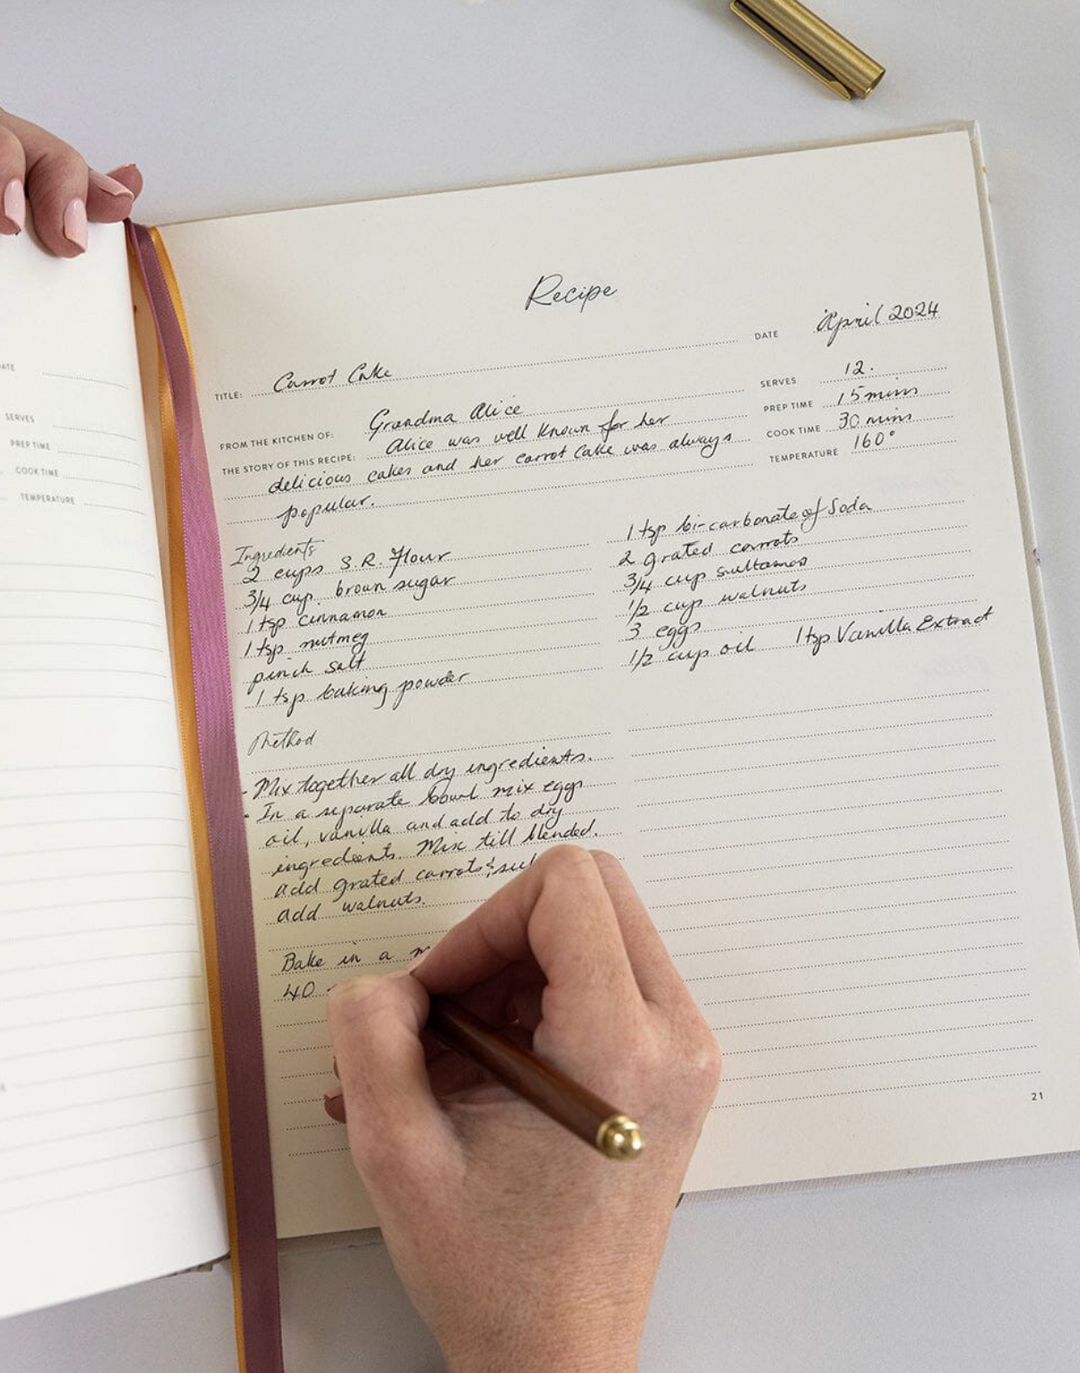 Recipe
DATE April 2024
TITLE: Carrot Cake
SERVES 12.
FROM THE KITCHEN OF: Grandma Alice
PREP TIME 15 mins
THE STORY OF THIS RECIPE: Alice was well known for her
COOK TIME 30 mins
delicious cakes and her carrot cake was always
TEMPERATURE 160°
popular.
Ingredients
2 cups S.R. Flour
3/4 cup brown sugar
1 tsp cinnamon
1 tsp nutmeg
pinch salt
1 tsp baking powder
1 tsp bi-carbonate of Soda
2 grated carrots
3/4 cup sultanas
1/2 cup walnuts
3 eggs
1/2 cup oil 1 tsp Vanilla Extract
Method
- Mix together all dry ingredients.
- In a separate bowl mix eggs
oil, vanilla and add to dry
ingredients. Mix till blended.
add grated carrots &
add walnuts.
Bake in a
40
21
SERVES
PREP TIME
COOK TIME
TEMPERATURE